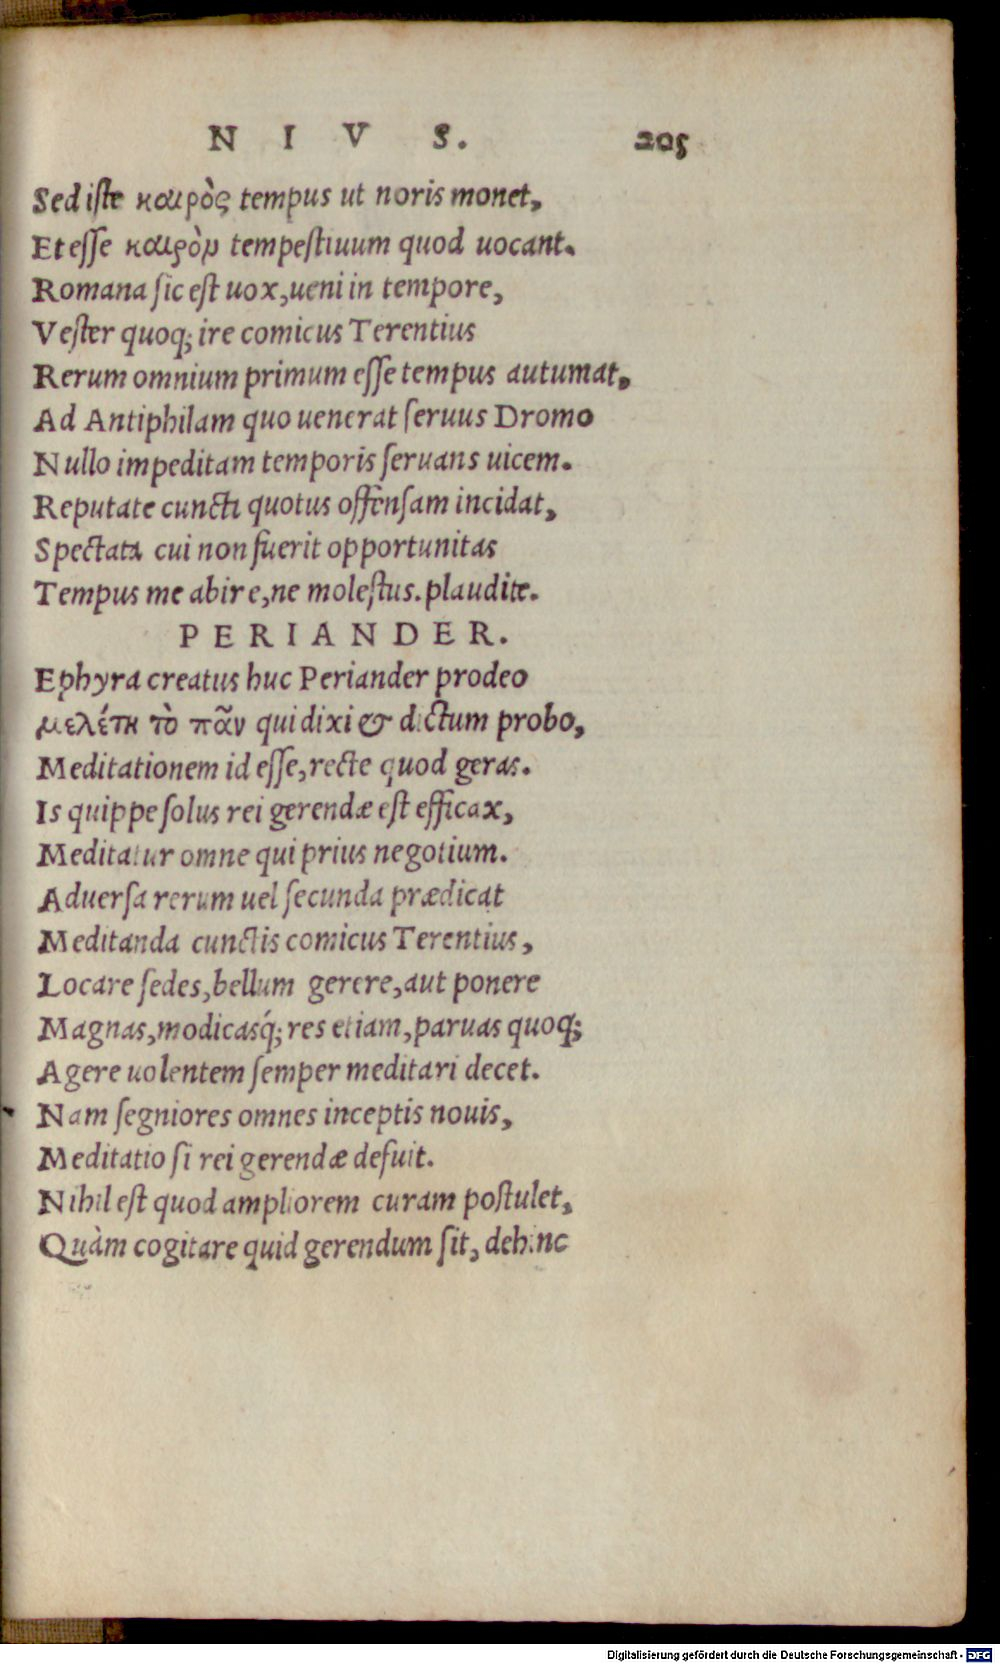 N I V S. 205
Sed iſte καιρὸς tempus ut noris monet,
Et eſſe καιρὸν tempeſtiuum quod uocant.
Romana ſic eſt uox, ueni in tempore,
Veſter quoq; ire comicus Terentius
Rerum omnium primum eſſe tempus autumat,
Ad Antiphilam quo uenerat ſeruus Dromo
Nullo impeditam temporis ſeruans uicem.
Reputate cuncti quotus offenſam incidat,
Spectata cui non fuerit opportunitas
Tempus me abire, ne moleſtus. plaudite.
P E R I A N D E R.
Ephyra creatus huc Periander prodeo
μελέτη τὸ πᾶν qui dixi & dictum probo,
Meditationem id eſſe, recte quod geras.
Is quippe ſolus rei gerendæ eſt efficax,
Meditatur omne qui prius negotium.
Aduerſa rerum uel ſecunda prædicat
Meditanda cunctis comicus Terentius,
Locare ſedes, bellum gerere, aut ponere
Magnas, modicasq́; res etiam, paruas quoq;
Agere uolentem ſemper meditari decet.
Nam ſegniores omnes inceptis nouis,
Meditatio ſi rei gerendæ defuit.
Nihil eſt quod ampliorem curam poſtulet,
Quàm cogitare quid gerendum ſit, dehinc
Digitalisierung gefördert durch die Deutsche Forschungsgemeinschaft - DFG